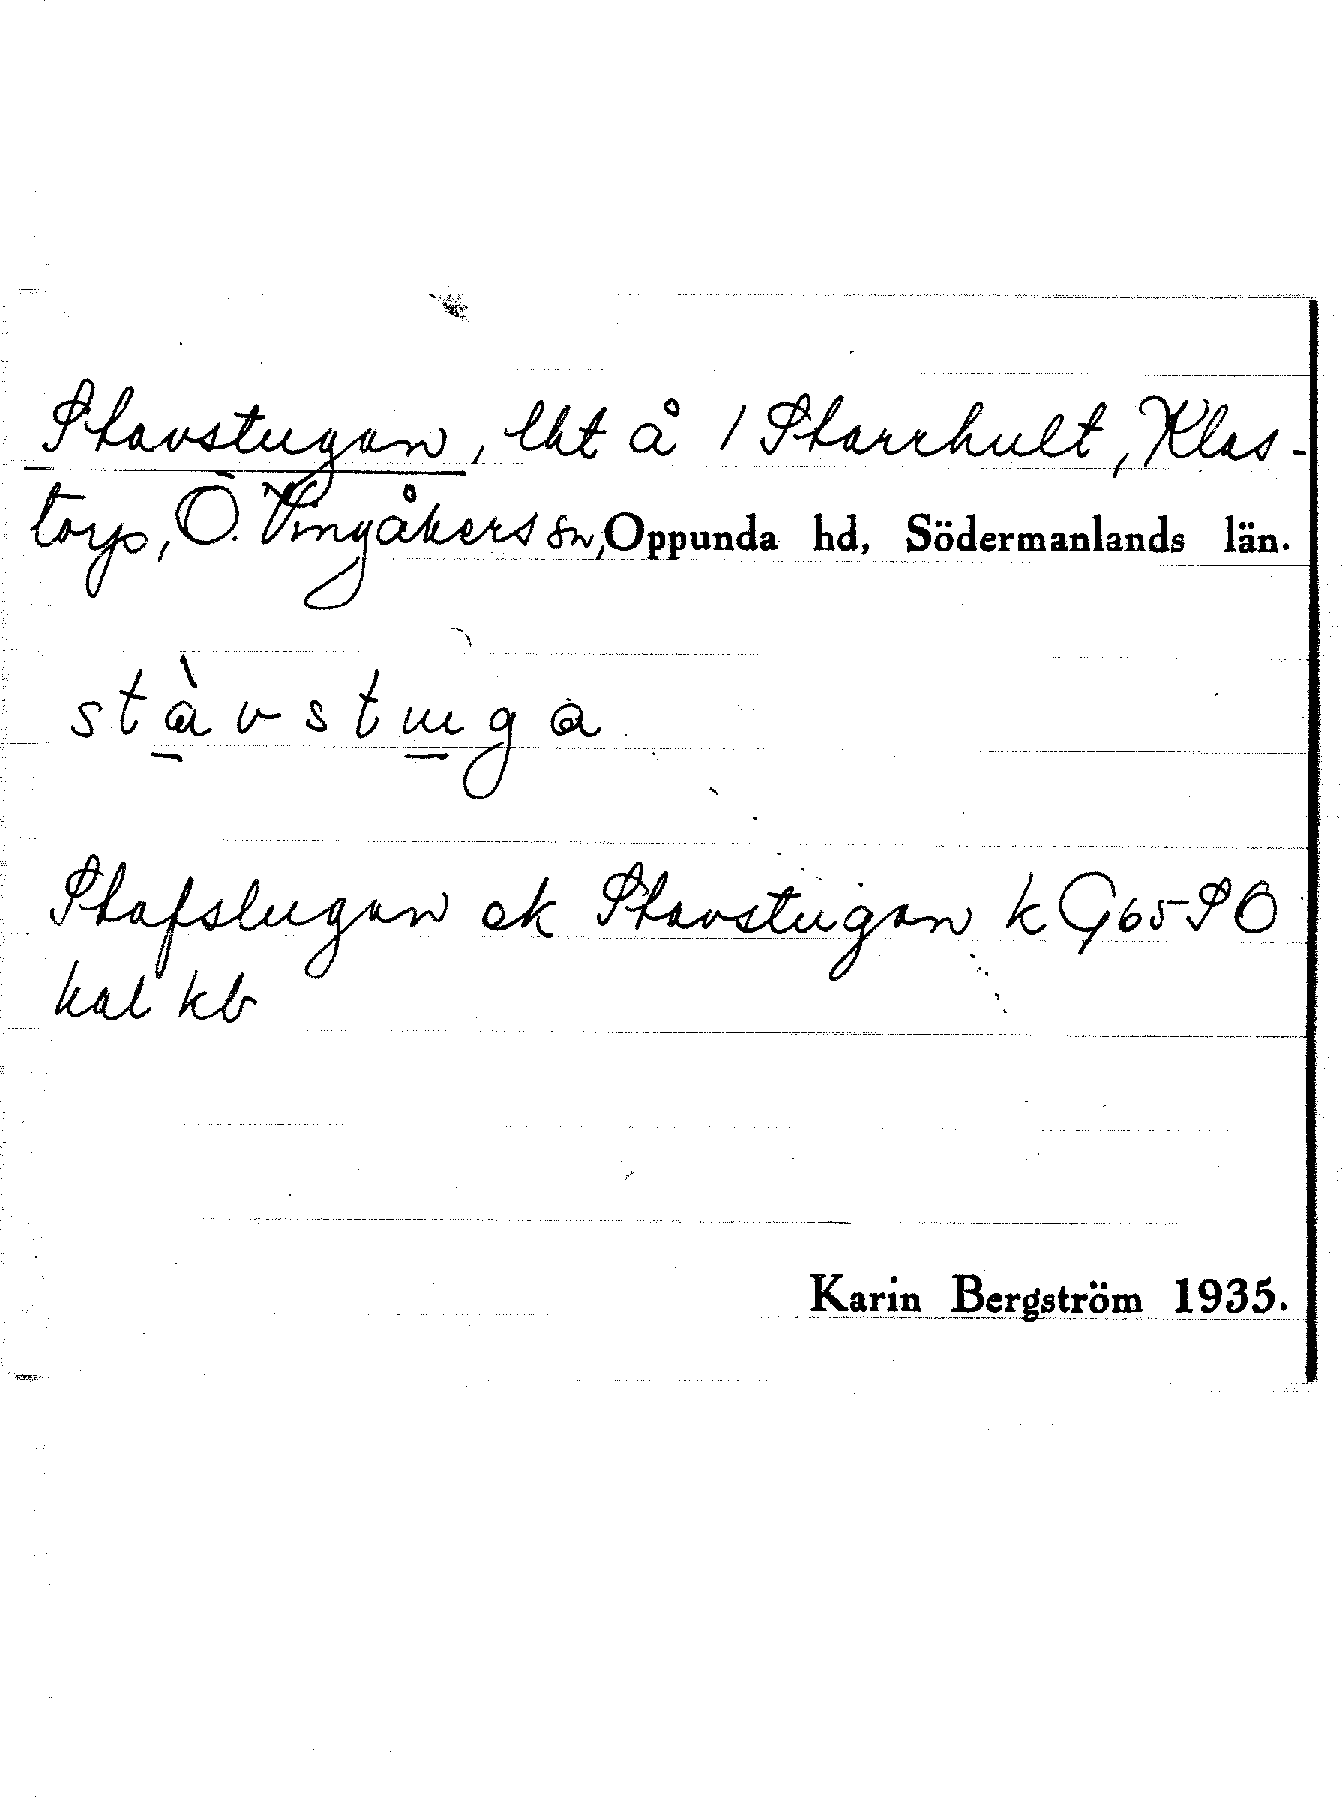 Stavstugan, lht å 1 Starrhult, Klas-
torp, Ö. Vingåkers sn, Oppunda hd, Södermanlands län.
stàvstuga
Stafslugan ek Stavstugan k G65 SO
kal kb
Karin Bergström 1935.